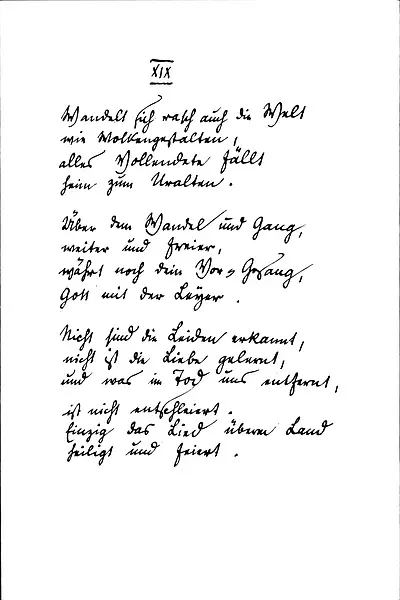 XIX
Wandelt sich rasch auch die Welt
wie Wolkengestalten,
alles Vollendete fällt
heim zum Uralten.
Über dem Wandel und Gang,
weiter und freier,
währt noch dein Vor-Gesang,
Gott mit der Leyer.
Nicht sind die Leiden erkannt,
nicht ist die Liebe gelernt,
und was im Tod uns entfernt,
ist nicht entschleiert.
Einzig das Lied überm Land
heiligt und feiert.